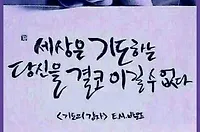 세상은 기도하는
당신을 결코 이길 수 없다
<기도의 강자> E.M. 바운즈